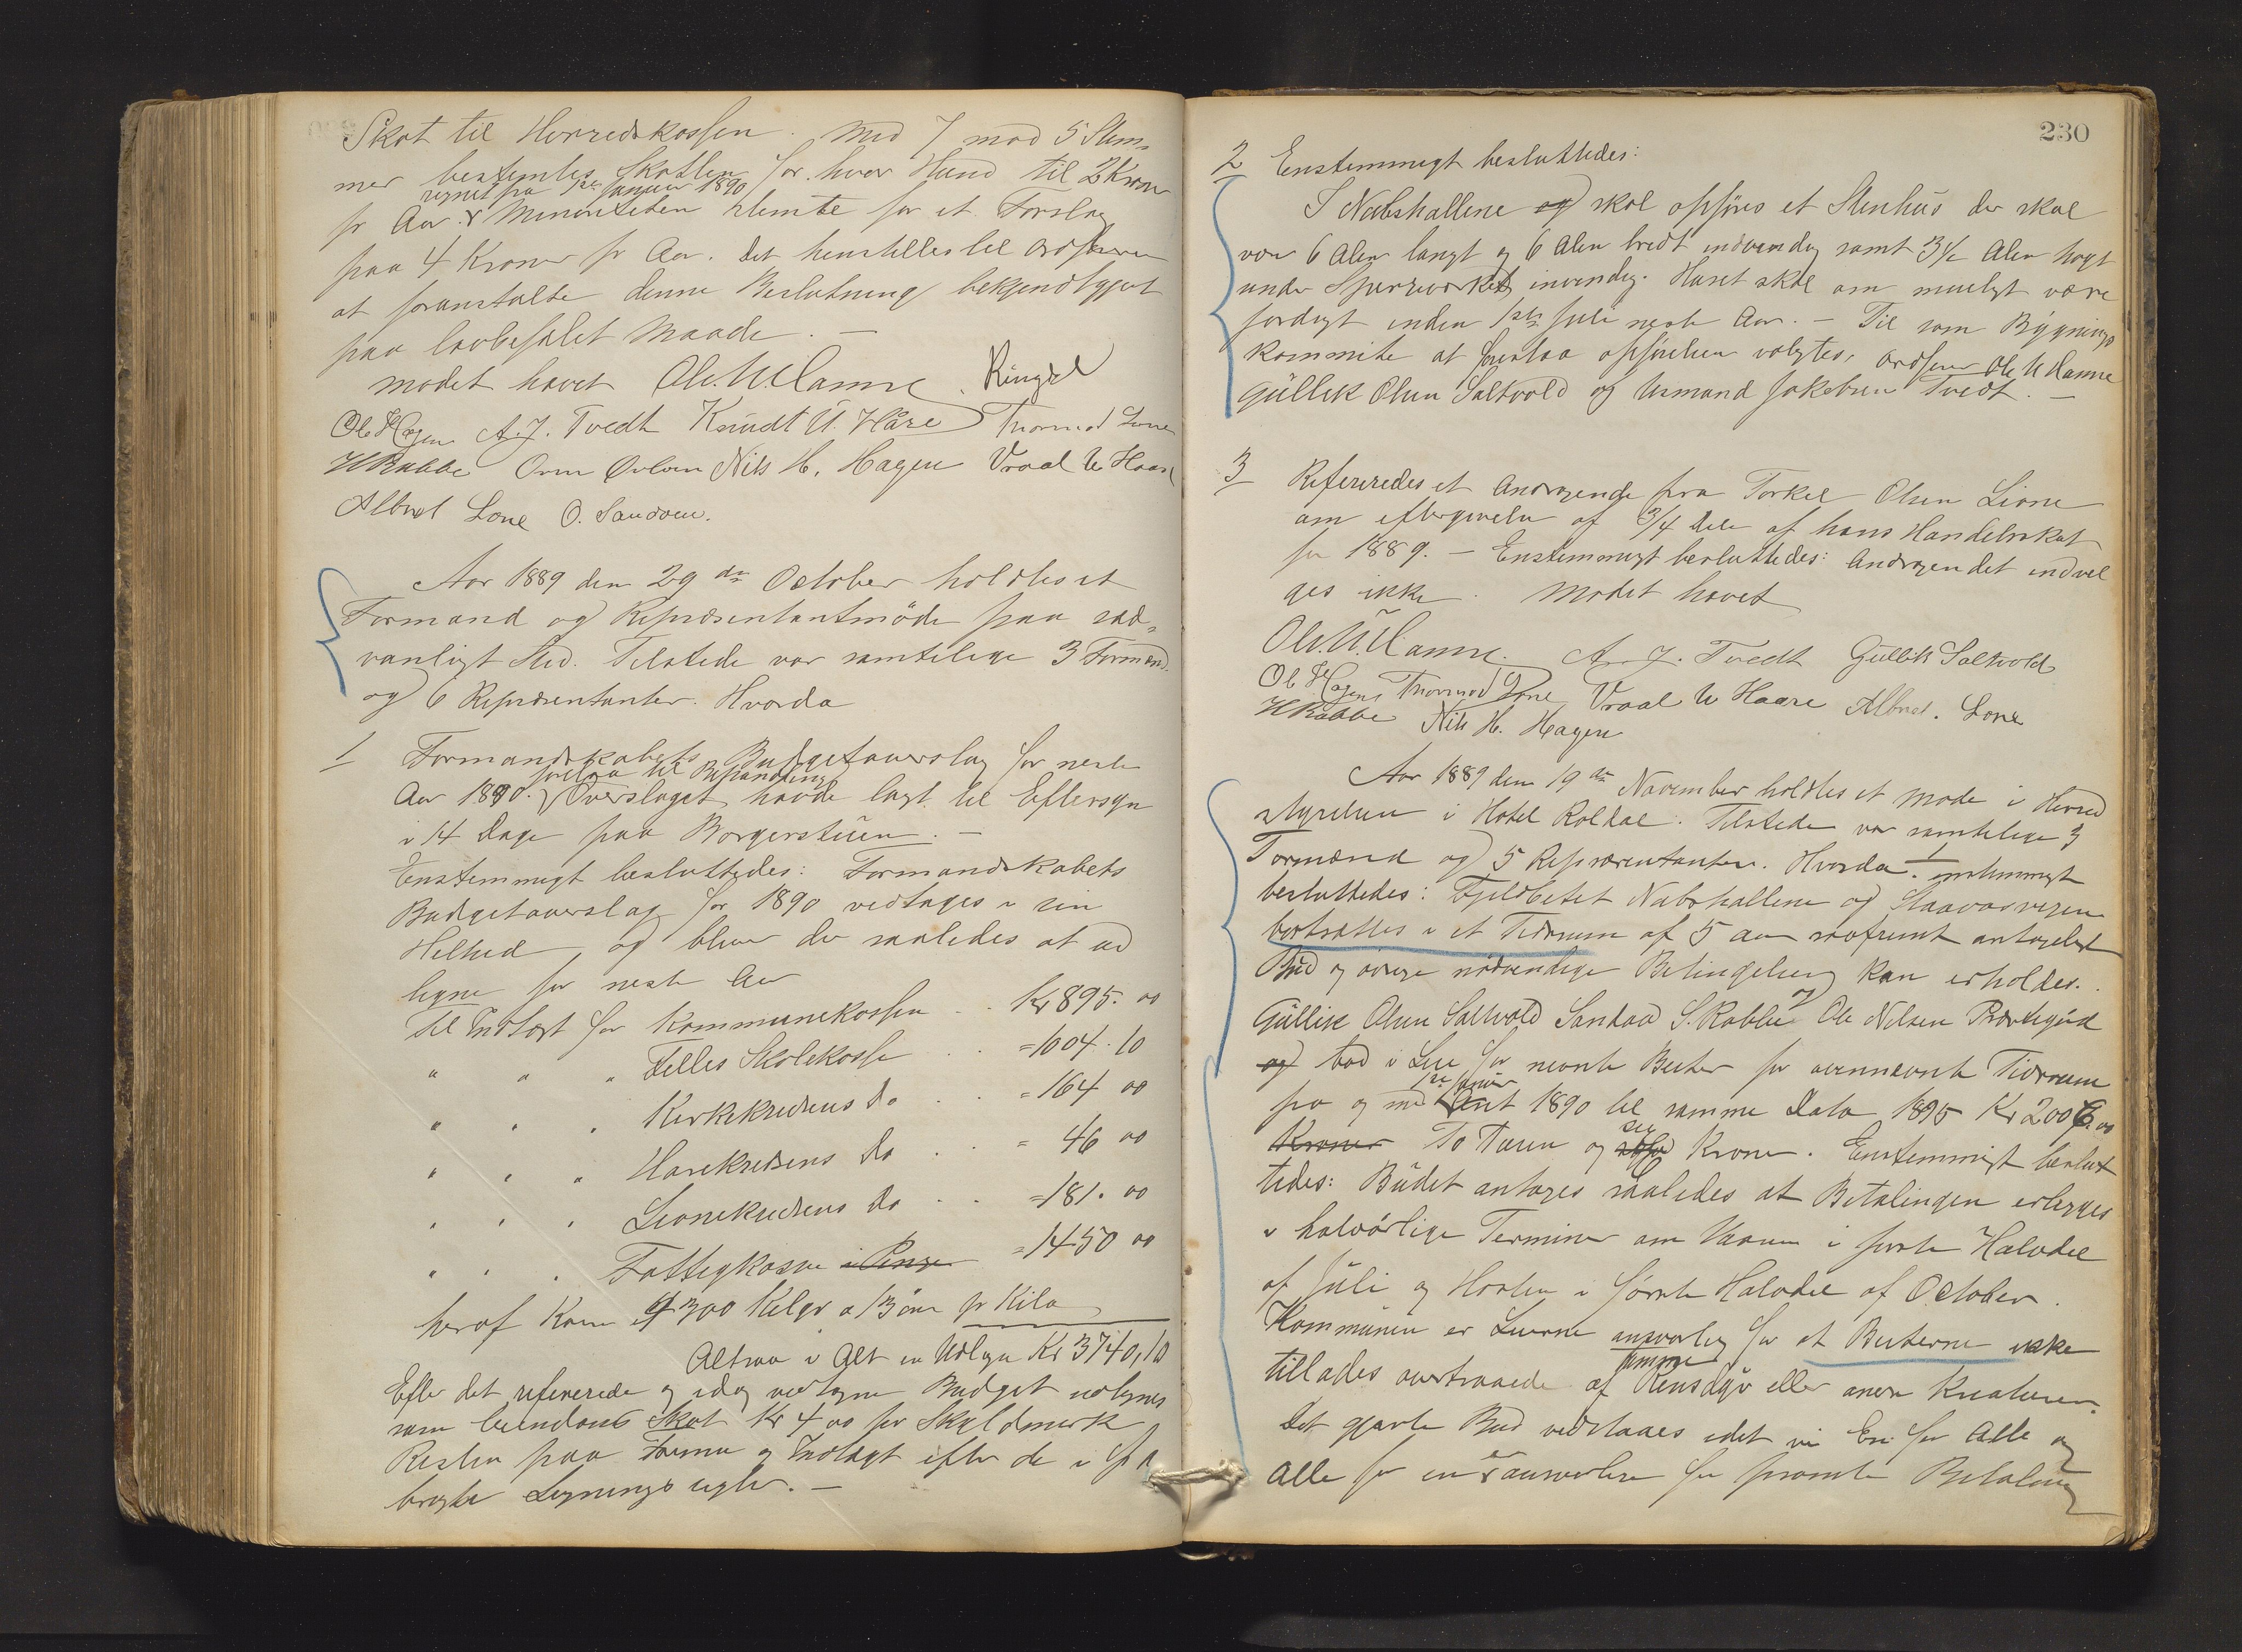 Skat til Herredskassen. Med 7 mod 5 Stem-
mer bestemtes Skatten for hver Hund til 2 Kroner
regnet fra 1ste Januar 1890
pr Aar. Minoriteten stemte for et Forslag
paa 4 Kroner pr Aar. Det henstilles til Ordføreren
at foranstalte denne Beslutning bekjendtgjort
paa lovbefalet Maade. —
Mødet hævet
Ole Hagen A. J. Tvedt Knudt U. Håre Thormod Lone
H Rabbe Orm Nils H. Hagen Vraal U Haare
Albret Lone O. Sandven.
Aar 1889 den 29de October holdtes et
Formand og Repræsentantmöde paa sæd-
vanligt Sted. Tilstede var samtelige 3 Formænd
og 6 Repræsentanter. Hvorda
1 Formandskabets Budgetoverslag for neste
foretoes til Behandling
Aar 1890. Overslaget havde lagt til Eftersyn
i 14 Dage paa Borgerstuen. —
Enstemmigt besluttedes: Formandskabets
Budgetoverslag for 1890 vedtages i sin
Helhed og bliver der saaledes at ud
ligne for neste Aar
til Indtægt for Kommunekassen . . Kr 895. 00
" " " Felles Skolekasse . . = 1004. 10
" " " Kirkekredsens Do . . = 164 00
" " " Harekredsens Do . . = 46 00
" " " Lionekredsens Do . . = 181. 00
" " " Fattigkassen i Penge = 1450 00
heraf Korn 4300 Kilgr a 13 øre pr Kilo
Altsaa i Alt en Udlign Kr 3740,10
Efter det refererede og idag vedtagne Budget udlignes
som Eiendoms Skat Kr 4 00 per Skyldmark
Resten paa Formue og Indtægt efter de i
bragte Ligningsregler. —
230
2 Enstemmigt besluttedes:
I Nabshallene og skal opføres et Stenhus der skal
være 6 Alen langt og 6 Alen bredt indvendig samt 3½ Alen høgt
under Sparreværket invendig. Huset skal om mueligt være
ferdigt inden 1ste Juli neste Aar. — Til som Bygnings
kommite at forestaa opførelsen valgtes, Ordfører
Gullik Olsen Saltvold og Asmund Jakobsen Tvedt. —
3 Refereredes et Andragende fra Torkel Olsen Lione
om eftergivelse af 3/4 Dele af hans Handelsskat
for 1889. — Enstemmigt besluttedes: Andragendet indvil
ges ikke. Mødet hævet
A. J. Tvedt Gullik Saltvold
Ole Hagen Thormod Lone Vraal U Haare Albret. Lone
H Rabbe Nils H. Hagen
Aar 1889 den 19de November holdtes et Møde i Herred
styrelsen i Hotel Roldal. Tilstede var samtelige 3
Formænd og 5 Repræsentanter. Hvorda 1 enstemmigt
besluttedes: Fjeldbeitet Nabshallene og Staavasvegen
bortsættes i et Tidsrum af 5 Aar saafremt antageligt
Bud og øvrige nödvendige Betingelser kan erholdes.
Gullik Olsen Saltvold S. Rabbe og Ole Nilsen Prestegård
og bød i Leie for nevnte Beiter for ovennævnte Tidsrum
1ste Januar
fra og med Aaret 1890 til samme Dato 1895 Kr 2006.00
Kroner To Tusen og sex Kroner. Enstemmigt beslut
tedes: Budet antages saaledes at Betalingen erlægges
i halvårlige Terminer om Vaaren i første Halvdel
af Juli og Høsten i første Halvdel af October.
Kommunen er Leierne ansvarlig for at Beiterne ikke
tamme
tillades overtraaede af Rensdyr eller andre Kreaturer.
Det gjorte Bud vedstaaes idet vi En for Alle og
Alle for en er ansvarlige for promte Betaling